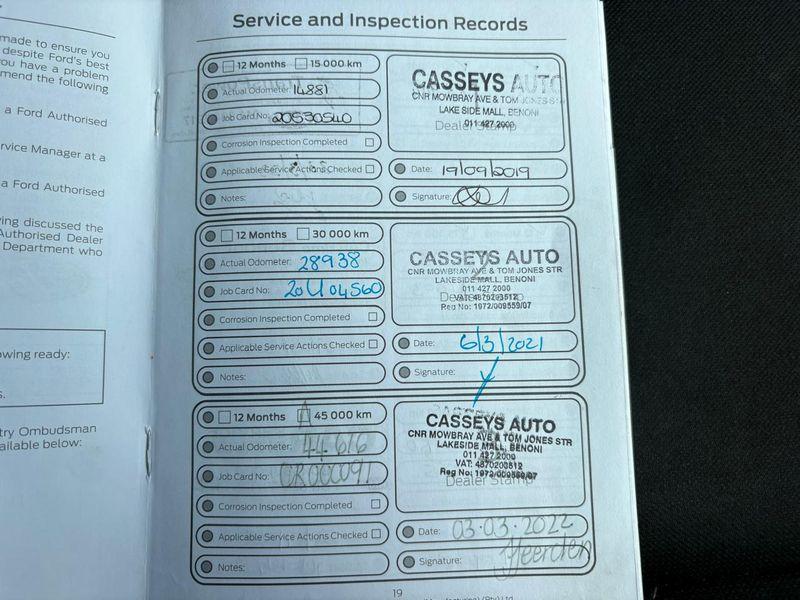 made to ensure you
despite Ford's best
you have a problem
mend the following
a Ford Authorised
rvice Manager at a
a Ford Authorised
ing discussed the
Authorised Dealer
Department who
owing ready:
s.
try Ombudsman
ailable below:
Service and Inspection Records
12 Months 15 000 km
Actual Odometer: 14881
Job Card No: 20530540
Corrosion Inspection Completed
Applicable Service Actions Checked
Notes:
CASSEYS AUTO
CNR MOWBRAY AVE & TOM JONES ST
LAKE SIDE MALL, BENONI
011 427 2000
Dealer Stamp
Date: 19/09/2019
Signature:
12 Months 30 000 km
Actual Odometer: 28938
Job Card No:
Corrosion Inspection Completed
Applicable Service Actions Checked
Notes:
CASSEYS AUTO
CNR MOWBRAY AVE & TOM JONES STR
LAKESIDE MALL, BENONI
011 427 2000
Dealer Stamp
VAT: 4870203512
Reg No: 1972/009559/07
Date: 6/3/2021
Signature:
12 Months 45 000 km
Actual Odometer: 44616
Job Card No:
Corrosion Inspection Completed
Applicable Service Actions Checked
Notes:
CASSEYS AUTO
CNR MOWBRAY AVE & TOM JONES STR
LAKESIDE MALL, BENONI
011 427 2000
VAT: 4870203512
Reg No: 1972/009559/07
Dealer Stamp
Date: 03.03.2022
Signature:
19